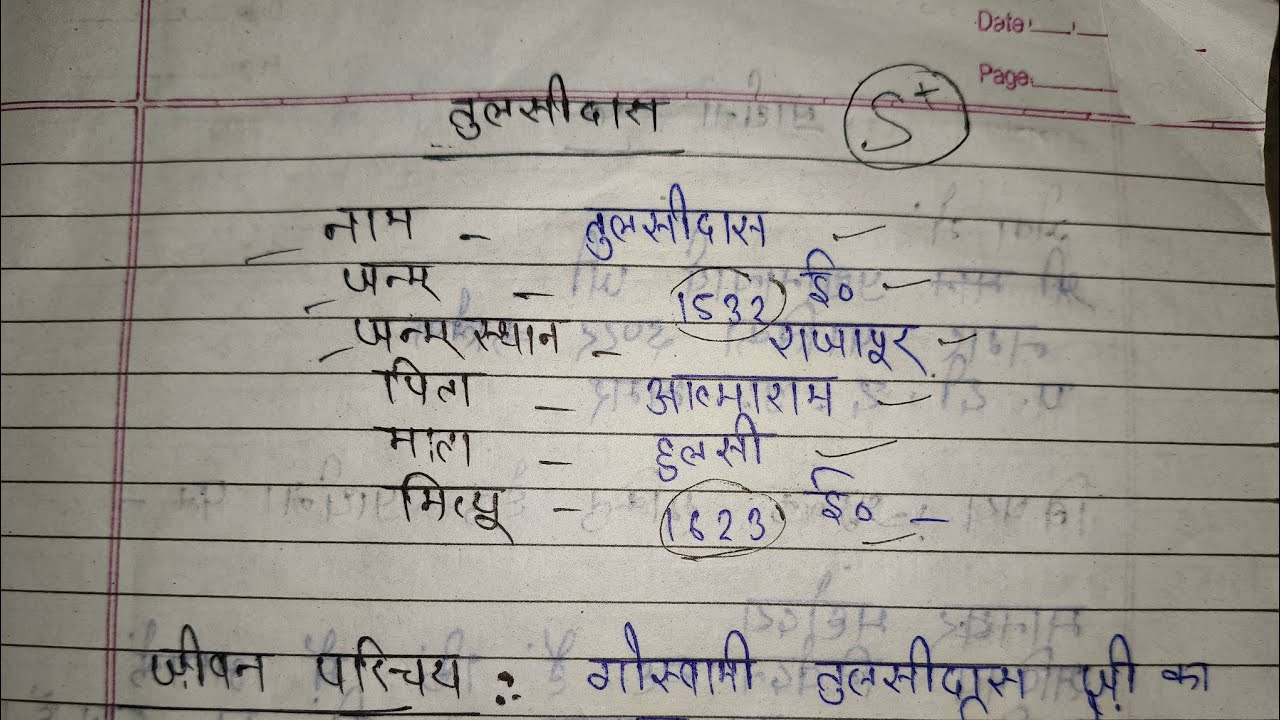 Date:
Page.
तुलसीदास
S+
नाम - तुलसीदास
जन्म - 1532 ई०
जन्म स्थान - राजापुर
पिता - आत्माराम
माता - हुलसी
मित्यू - 1623 ई०
जीवन परिचय : गोस्वामी तुलसीदास जी का